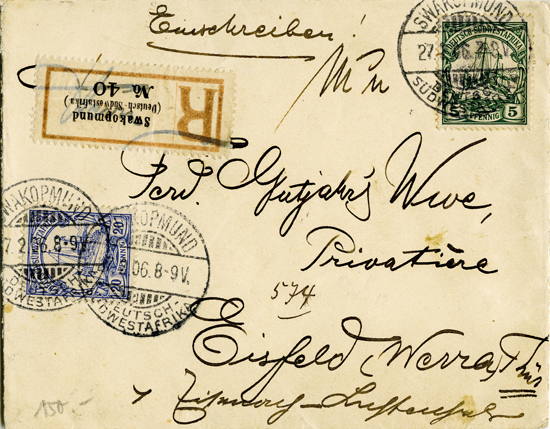 Einschreiben!
SWAKOPMUND
27. 06. 8-9V.
DEUTSCH-SÜDWESTAFRIKA
5 PFENNIG 5
R
Swakopmund
(Deutsch-Südwestafrika)
№ 40
Ferd. Gutjahr's Wwe,
Privatière
574
Eisfeld (Werra) Thür
SWAKOPMUND
7.2. 06. 8-9V.
DEUTSCH-SÜDWESTAFRIKA
20 PFENNIG 20
SWAKOPMUND
06. 8-9V.
DEUTSCH-SÜDWESTAFRIKA
150.-